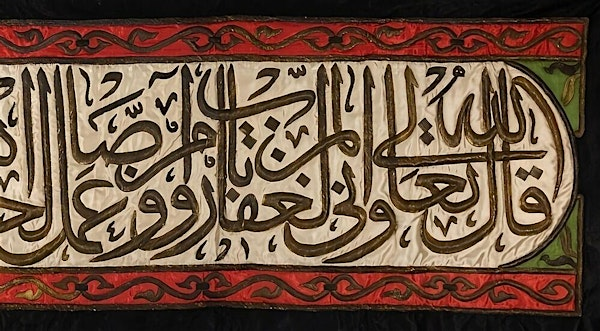 قال الله تعالى واني لغفار لمن تاب وآمن وعمل صالحا